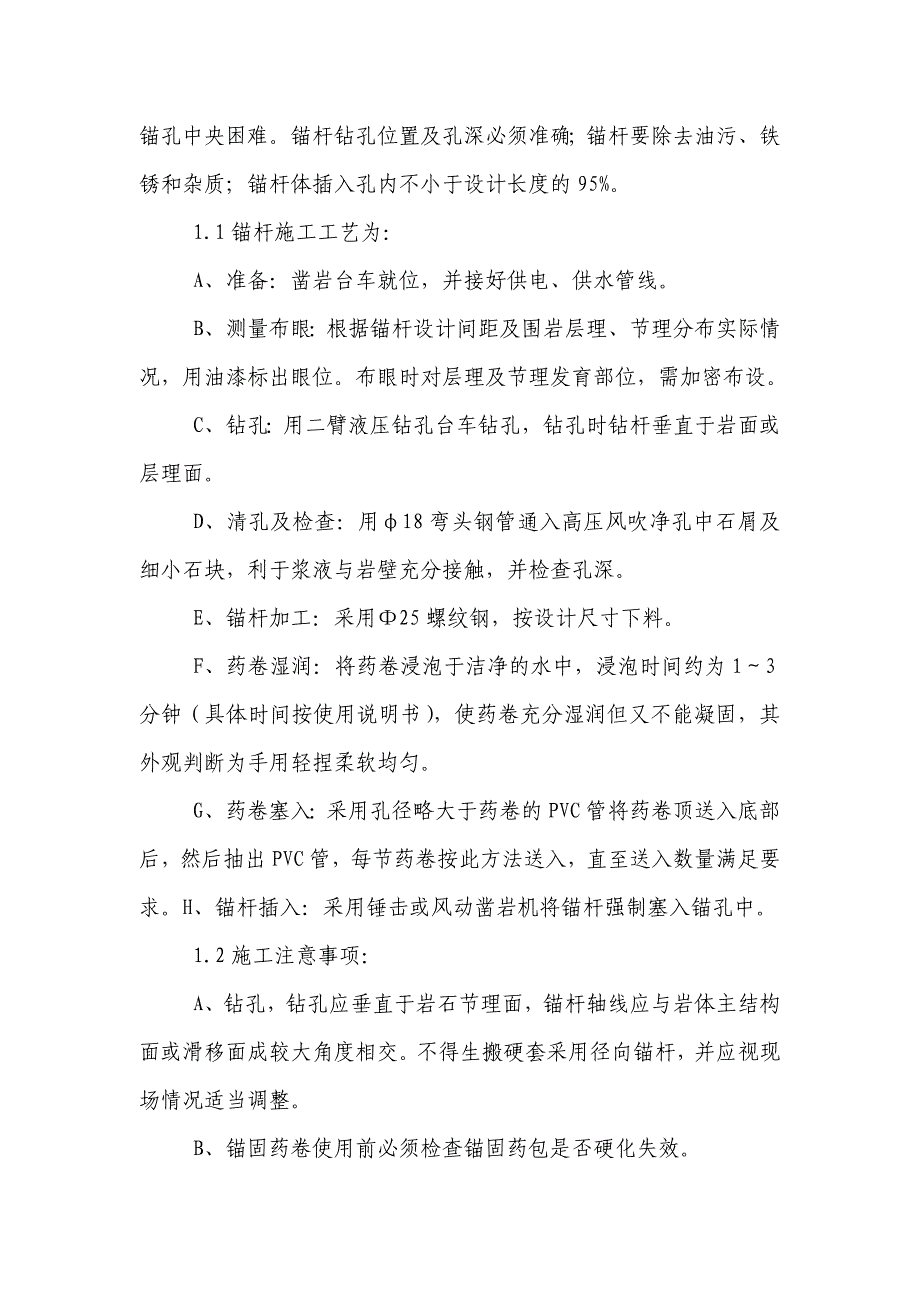 锚孔中央困难。锚杆钻孔位置及孔深必须准确；锚杆要除去油污、铁
锈和杂质；锚杆体插入孔内不小于设计长度的 95%。
1.1 锚杆施工工艺为：
A、准备：凿岩台车就位，并接好供电、供水管线。
B、测量布眼：根据锚杆设计间距及围岩层理、节理分布实际情
况，用油漆标出眼位。布眼时对层理及节理发育部位，需加密布设。
C、钻孔：用二臂液压钻孔台车钻孔，钻孔时钻杆垂直于岩面或
层理面。
D、清孔及检查：用φ18 弯头钢管通入高压风吹净孔中石屑及
细小石块，利于浆液与岩壁充分接触，并检查孔深。
E、锚杆加工：采用Φ25 螺纹钢，按设计尺寸下料。
F、药卷湿润：将药卷浸泡于洁净的水中，浸泡时间约为 1～3
分钟（具体时间按使用说明书），使药卷充分湿润但又不能凝固，其
外观判断为手用轻捏柔软均匀。
G、药卷塞入：采用孔径略大于药卷的 PVC 管将药卷顶送入底部
后，然后抽出 PVC 管，每节药卷按此方法送入，直至送入数量满足要
求。H、锚杆插入：采用锤击或风动凿岩机将锚杆强制塞入锚孔中。
1.2 施工注意事项：
A、钻孔，钻孔应垂直于岩石节理面，锚杆轴线应与岩体主结构
面或滑移面成较大角度相交。不得生搬硬套采用径向锚杆，并应视现
场情况适当调整。
B、锚固药卷使用前必须检查锚固药包是否硬化失效。